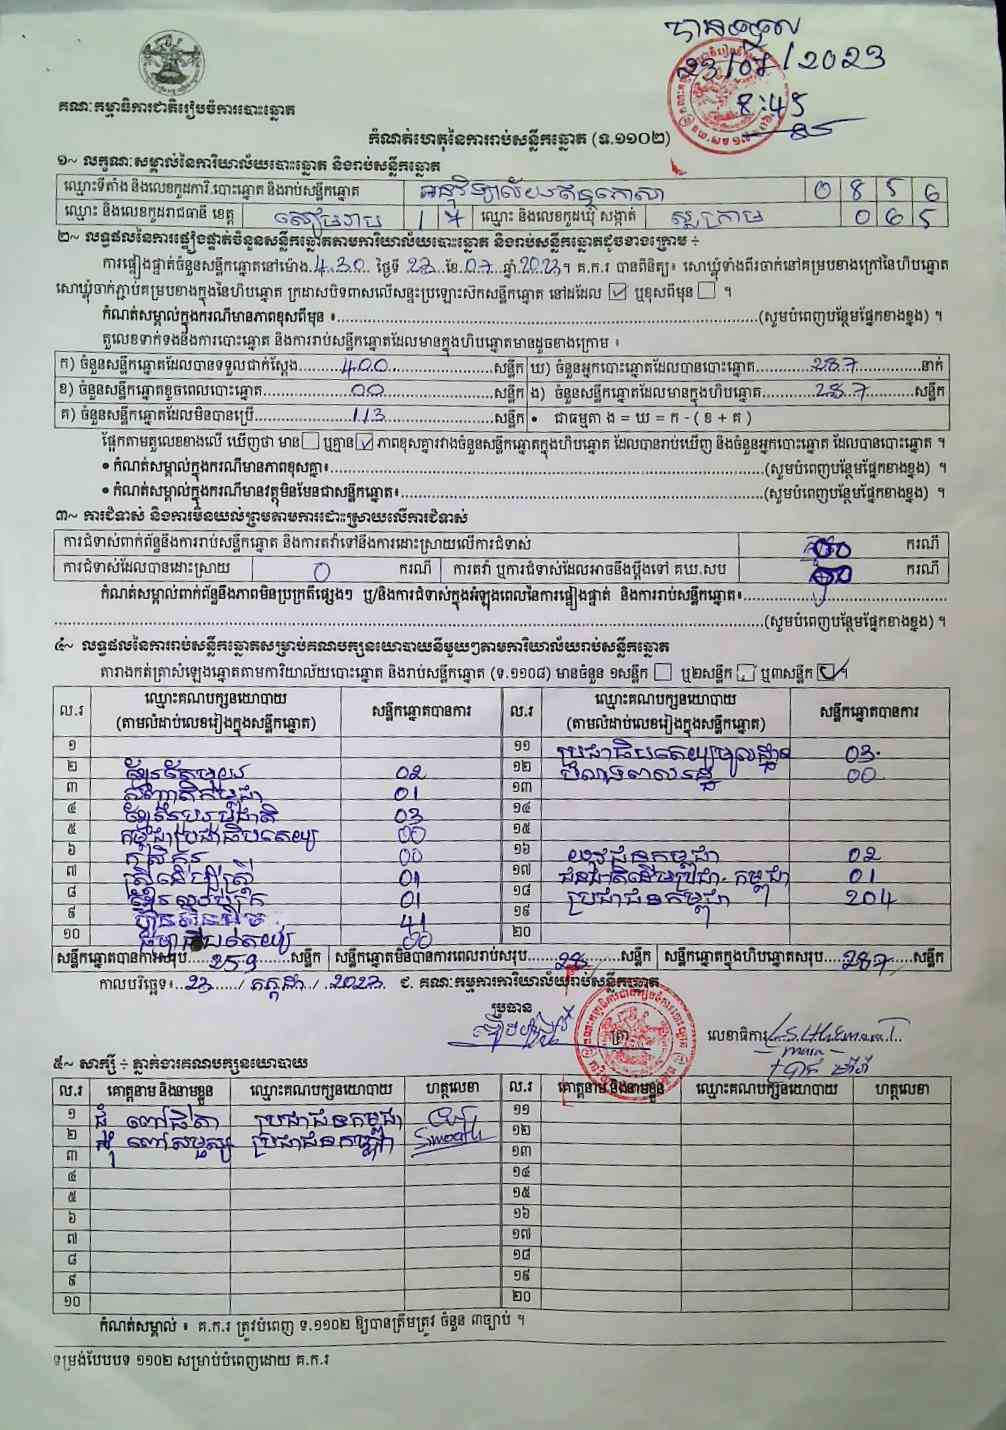 បានទទួល
23/07/2023
8:45
គណៈកម្មាធិការជាតិរៀបចំការបោះឆ្នោត
កំណត់ហេតុនៃការរាប់សន្លឹកឆ្នោត (ទ.១១០២)
១~ លក្ខណៈសម្គាល់នៃការិយាល័យបោះឆ្នោត និងរាប់សន្លឹកឆ្នោត
ឈ្មោះទីតាំង និងលេខកូដការិ.បោះឆ្នោត និងរាប់សន្លឹកឆ្នោត អនុវិទ្យាល័យឥន្ទកោសា 0 8 5 6
ឈ្មោះ និងលេខកូដរាជធានី ខេត្ត សៀមរាប 1 7 ឈ្មោះ និងលេខកូដឃុំ សង្កាត់ ស្លក្រាម 0 6 5
២~ លទ្ធផលនៃការផ្ទៀងផ្ទាត់ចំនួនសន្លឹកឆ្នោតតាមការិយាល័យបោះឆ្នោត និងរាប់សន្លឹកឆ្នោតដូចខាងក្រោម ÷
ការផ្ទៀងផ្ទាត់ចំនួនសន្លឹកឆ្នោតនៅម៉ោង 4.30 ថ្ងៃទី 23 ខែ 07 ឆ្នាំ 2023។ គ.ក.រ បានពិនិត្យ៖ សោឃ្លុំទាំងពីរចាក់នៅគម្របខាងក្រៅនៃហិបឆ្នោត
សោឃ្លុំចាក់ភ្ជាប់គម្របខាងក្នុងនៃហិបឆ្នោត ក្រដាសបិទពាសលើសន្ទះប្រឡោះស៊កសន្លឹកឆ្នោត នៅដដែល ☑ ឬខុសពីមុន ☐ ។
កំណត់សម្គាល់ក្នុងករណីមានភាពខុសពីមុន ៖ (សូមបំពេញបន្ថែមផ្នែកខាងខ្នង) ។
តួលេខទាក់ទងនឹងការបោះឆ្នោត និងការរាប់សន្លឹកឆ្នោតដែលមានក្នុងហិបឆ្នោតមានដូចខាងក្រោម ៖
ក) ចំនួនសន្លឹកឆ្នោតដែលបានទទួលជាក់ស្តែង 400 សន្លឹក ឃ) ចំនួនអ្នកបោះឆ្នោតដែលបានបោះឆ្នោត 287 នាក់
ខ) ចំនួនសន្លឹកឆ្នោតខូចពេលបោះឆ្នោត 00 សន្លឹក ង) ចំនួនសន្លឹកឆ្នោតដែលមានក្នុងហិបឆ្នោត 287 សន្លឹក
គ) ចំនួនសន្លឹកឆ្នោតដែលមិនបានប្រើ 113 សន្លឹក • ជាធម្មតា ង = ឃ = ក - ( ខ + គ )
ផ្អែកតាមតួលេខខាងលើ ឃើញថា មាន ☐ ឬគ្មាន ☑ ភាពខុសគ្នារវាងចំនួនសន្លឹកឆ្នោតក្នុងហិបឆ្នោត ដែលបានរាប់ឃើញ និងចំនួនអ្នកបោះឆ្នោត ដែលបានបោះឆ្នោត ។
• កំណត់សម្គាល់ក្នុងករណីមានភាពខុសគ្នា៖ (សូមបំពេញបន្ថែមផ្នែកខាងខ្នង) ។
• កំណត់សម្គាល់ក្នុងករណីមានវត្ថុមិនមែនជាសន្លឹកឆ្នោត៖ (សូមបំពេញបន្ថែមផ្នែកខាងខ្នង) ។
៣~ ការជំទាស់ និងការមិនយល់ព្រមតាមការដោះស្រាយលើការជំទាស់
ការជំទាស់ពាក់ព័ន្ធនឹងការរាប់សន្លឹកឆ្នោត និងការតវ៉ាទៅនឹងការដោះស្រាយលើការជំទាស់ 00 ករណី
ការជំទាស់ដែលបានដោះស្រាយ 0 ករណី ការតវ៉ា ឬការជំទាស់ដែលអាចនឹងប្តឹងទៅ គឃ.សប 00 ករណី
កំណត់សម្គាល់ពាក់ព័ន្ធនឹងភាពមិនប្រក្រតីផ្សេងៗ ឬ/និងការជំទាស់ក្នុងអំឡុងពេលនៃការផ្ទៀងផ្ទាត់ និងការរាប់សន្លឹកឆ្នោត៖
(សូមបំពេញបន្ថែមផ្នែកខាងខ្នង) ។
៤~ លទ្ធផលនៃការរាប់សន្លឹកឆ្នោតសម្រាប់គណបក្សនយោបាយនីមួយៗតាមការិយាល័យរាប់សន្លឹកឆ្នោត
តារាងកត់ត្រាសំឡេងឆ្នោតតាមការិយាល័យបោះឆ្នោត និងរាប់សន្លឹកឆ្នោត (ទ.១១០៨) មានចំនួន ១សន្លឹក ☐ ឬ២សន្លឹក ☐ ឬ៣សន្លឹក ☑។
ល.រ ឈ្មោះគណបក្សនយោបាយ (តាមលំដាប់លេខរៀងក្នុងសន្លឹកឆ្នោត) សន្លឹកឆ្នោតបានការ ល.រ ឈ្មោះគណបក្សនយោបាយ (តាមលំដាប់លេខរៀងក្នុងសន្លឹកឆ្នោត) សន្លឹកឆ្នោតបានការ
១ ១១ ប្រជាធិបតេយ្យមូលដ្ឋាន 03
២ ខ្មែរតែមួយ 02 ១២ បំរើជាតិ 00
៣ សញ្ជាតិកម្ពុជា 01 ១៣
៤ ខ្មែររួបរួមជាតិ 03 ១៤
៥ កម្ពុជាប្រជាធិបតេយ្យ 00 ១៥
៦ កសិករ 00 ១៦ យុវជនកម្ពុជា 02
៧ ស្រ្តីដើម្បីស្ត្រី 01 ១៧ ជនជាតិដើមប្រជា. កម្ពុជា 01
៨ ខ្មែរ 01 ១៨ ប្រជាជនកម្ពុជា 204
៩ ហ៊្វុនស៊ិនប៉ិច 41 ១៩
១០ ធម្មាធិបតេយ្យ 00 ២០
សន្លឹកឆ្នោតបានការសរុប 259 សន្លឹក សន្លឹកឆ្នោតមិនបានការពេលរាប់សរុប 28 សន្លឹក សន្លឹកឆ្នោតក្នុងហិបឆ្នោតសរុប 287 សន្លឹក
កាលបរិច្ឆេទ៖ 23 / កក្កដា / 2023 ជ. គណៈកម្មការការិយាល័យរាប់សន្លឹកឆ្នោត
ប្រធាន
ត្រា លេខាធិការ
៥~ សាក្សី ÷ ភ្នាក់ងារគណបក្សនយោបាយ
ល.រ គោត្តនាម និងនាមខ្លួន ឈ្មោះគណបក្សនយោបាយ ហត្ថលេខា ល.រ គោត្តនាម និងនាមខ្លួន ឈ្មោះគណបក្សនយោបាយ ហត្ថលេខា
១ ជំ ពៅធីតា ប្រជាជនកម្ពុជា ១១
២ ប្រជាជនកម្ពុជា ១២
៣ ១៣
៤ ១៤
៥ ១៥
៦ ១៦
៧ ១៧
៨ ១៨
៩ ១៩
១០ ២០
កំណត់សម្គាល់ ៖ គ.ក.រ ត្រូវបំពេញ ទ.១១០២ ឱ្យបានត្រឹមត្រូវ ចំនួន ៣ច្បាប់ ។
ទម្រង់បែបបទ ១១០២ សម្រាប់បំពេញដោយ គ.ក.រ